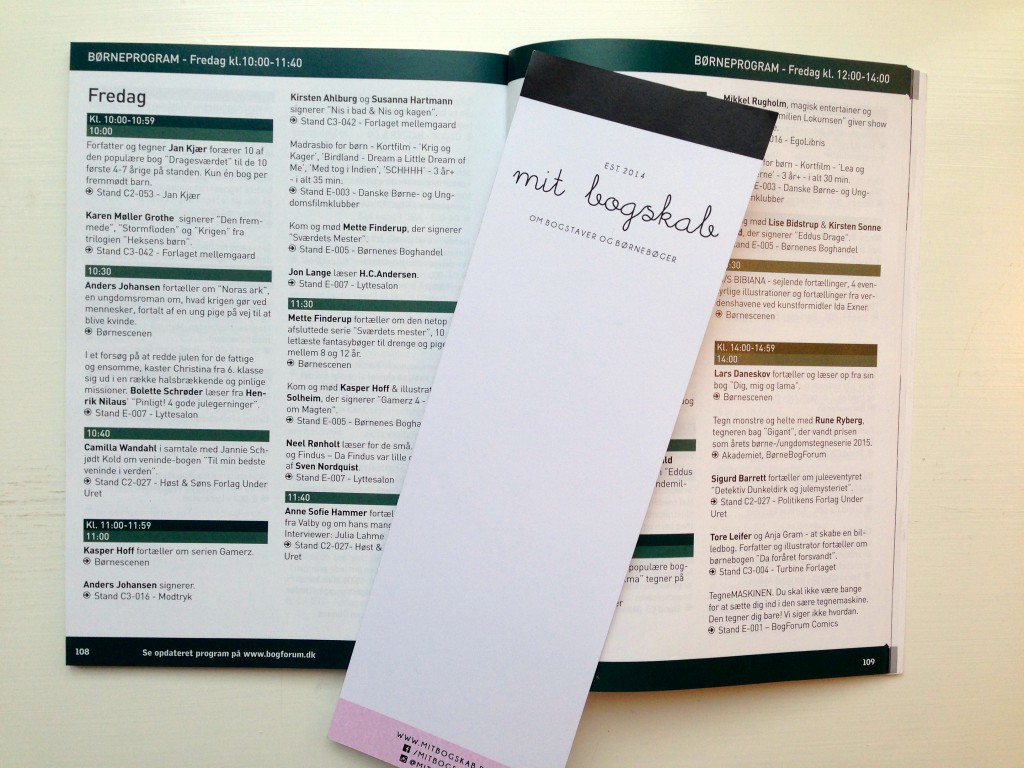 BØRNEPROGRAM - Fredag kl.10:00-11:40
Fredag
Kl. 10:00-10:59
10:00
Forfatter og tegner Jan Kjær forærer 10 af
den populære bog "Dragesværdet" til de 10
første 4-7 årige på standen. Kun én bog per
fremmødt barn.
Stand C2-053 - Jan Kjær
Karen Møller Grothe signerer "Den frem-
mede", "Stormfloden" og "Krigen" fra
trilogien "Heksens børn".
Stand C3-042 - Forlaget mellemgaard
10:30
Anders Johansen fortæller om "Noras ark",
en ungdomsroman om, hvad krigen gør ved
mennesker, fortalt af en ung pige på vej til at
blive kvinde.
Børnescenen
I et forsøg på at redde julen for de fattige
og ensomme, kaster Christina fra 6. klasse
sig ud i en række halsbrækkende og pinlige
missioner. Bolette Schrøder læser fra Hen-
rik Nilaus' "Pinligt! 4 gode julegerninger".
Stand E-007 - Lyttesalon
10:40
Camilla Wandahl i samtale med Jannie Sch-
jødt Kold om veninde-bogen "Til min bedste
veninde i verden".
Stand C2-027 - Høst & Søns Forlag Under
Uret
Kl. 11:00-11:59
11:00
Kasper Hoff fortæller om serien Gamerz.
Børnescenen
Anders Johansen signerer.
Stand C3-016 - Modtryk
Kirsten Ahlburg og Susanna Hartmann
signerer "Nis i bad & Nis og kagen".
Stand C3-042 - Forlaget mellemgaard
Madrasbio for børn - Kortfilm - 'Krig og
Kager', 'Birdland - Dream a Little Dream of
Me', 'Med tog i Indien', 'SCHHHH' - 3 år+
- i alt 35 min.
Stand E-003 - Danske Børne- og Ung-
domsfilmklubber
Kom og mød Mette Finderup, der signerer
"Sværdets Mester".
Stand E-005 - Børnenes Boghandel
Jon Lange læser H.C.Andersen.
Stand E-007 - Lyttesalon
11:30
Mette Finderup fortæller om den netop
afsluttede serie "Sværdets mester", 10
letlæste fantasybøger til drenge og pige
mellem 8 og 12 år.
Børnescenen
Kom og mød Kasper Hoff & illustrat
Solheim, der signerer "Gamerz 4 -
om Magten".
Stand E-005 - Børnenes Bogha
Neel Rønholt læser for de små.
og Findus – Da Findus var lille
af Sven Nordquist.
Stand E-007 - Lyttesalon
11:40
Anne Sofie Hammer fortæl
fra Valby og om hans man
Interviewer: Julia Lahme
Stand C2-027- Høst &
Uret
108
Se opdateret program på www.bogforum.dk
EST. 2014
mit bogskab
OM BOGSTAVER OG BØRNEBØGER
WWW.MITBOGSKAB.
/MITBOGSK
@MIT
BØRNEPROGRAM - Fredag kl. 12:00-14:00
ald
"Eddus
ndemil-
populære bog-
ma" tegner på
er
Mikkel Rugholm, magisk entertainer og
milien Lokumsen" giver show
016 - EgoLibris
for børn - Kortfilm - 'Lea og
rne' - 3 år+ - i alt 30 min.
E-003 - Danske Børne- og Ung-
klubber
og mød Lise Bidstrup & Kirsten Sonne
d, der signerer "Eddus Drage".
E-005 - Børnenes Boghandel
:30
/S BIBIANA - sejlende fortællinger, 4 even-
yrlige illustrationer og fortællinger fra ver-
denshavene ved kunstformidler Ida Exner.
Børnescenen
Kl. 14:00-14:59
14:00
Lars Daneskov fortæller og læser op fra sin
bog "Dig, mig og lama".
Børnescenen
Tegn monstre og helte med Rune Ryberg,
tegneren bag "Gigant", der vandt prisen
som årets børne-/ungdomstegneserie 2015.
Akademiet, BørneBogForum
Sigurd Barrett fortæller om juleeventyret
"Detektiv Dunkeldirk og julemysteriet".
Stand C2-027 - Politikens Forlag Under
Uret
Tore Leifer og Anja Gram - at skabe en bil-
ledbog. Forfatter og illustrator fortæller om
børnebogen "Da foråret forsvandt".
Stand C3-004 - Turbine Forlaget
TegneMASKINEN. Du skal ikke være bange
for at sætte dig ind i den sære tegnemaskine.
Den tegner dig bare! Vi siger ikke hvordan.
Stand E-001 – BogForum Comics
109